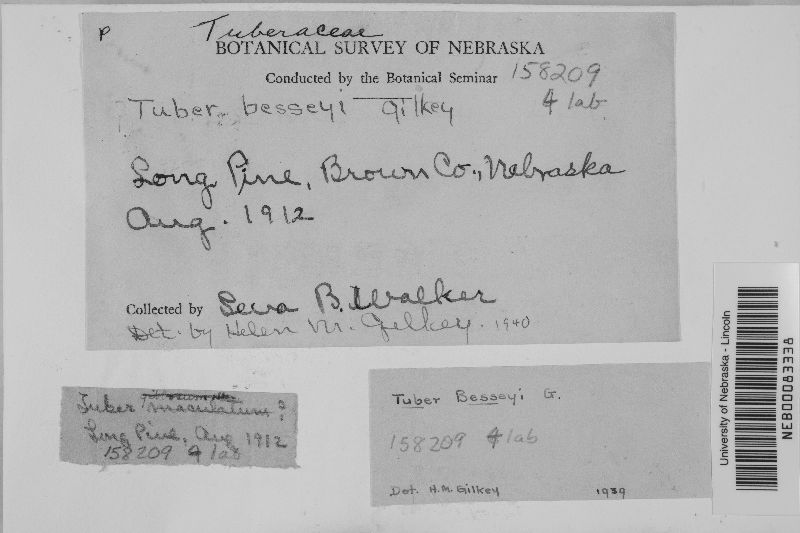 P
Tuberaceae
BOTANICAL SURVEY OF NEBRASKA
Conducted by the Botanical Seminar 158209
Tuber besseyi Gilkey 4 lab
Long Pine, Brown Co., Nebraska
Aug. 1912
Collected by Leva B. Walker
Det. by Helen M. Gilkey. 1940
Tuber maculatum?
Long Pine, Aug 1912
158209 4 lab
Tuber Besseyi G.
158209 4 lab
Det. H.M. Gilkey 1939
University of Nebraska - Lincoln
NEB00083338